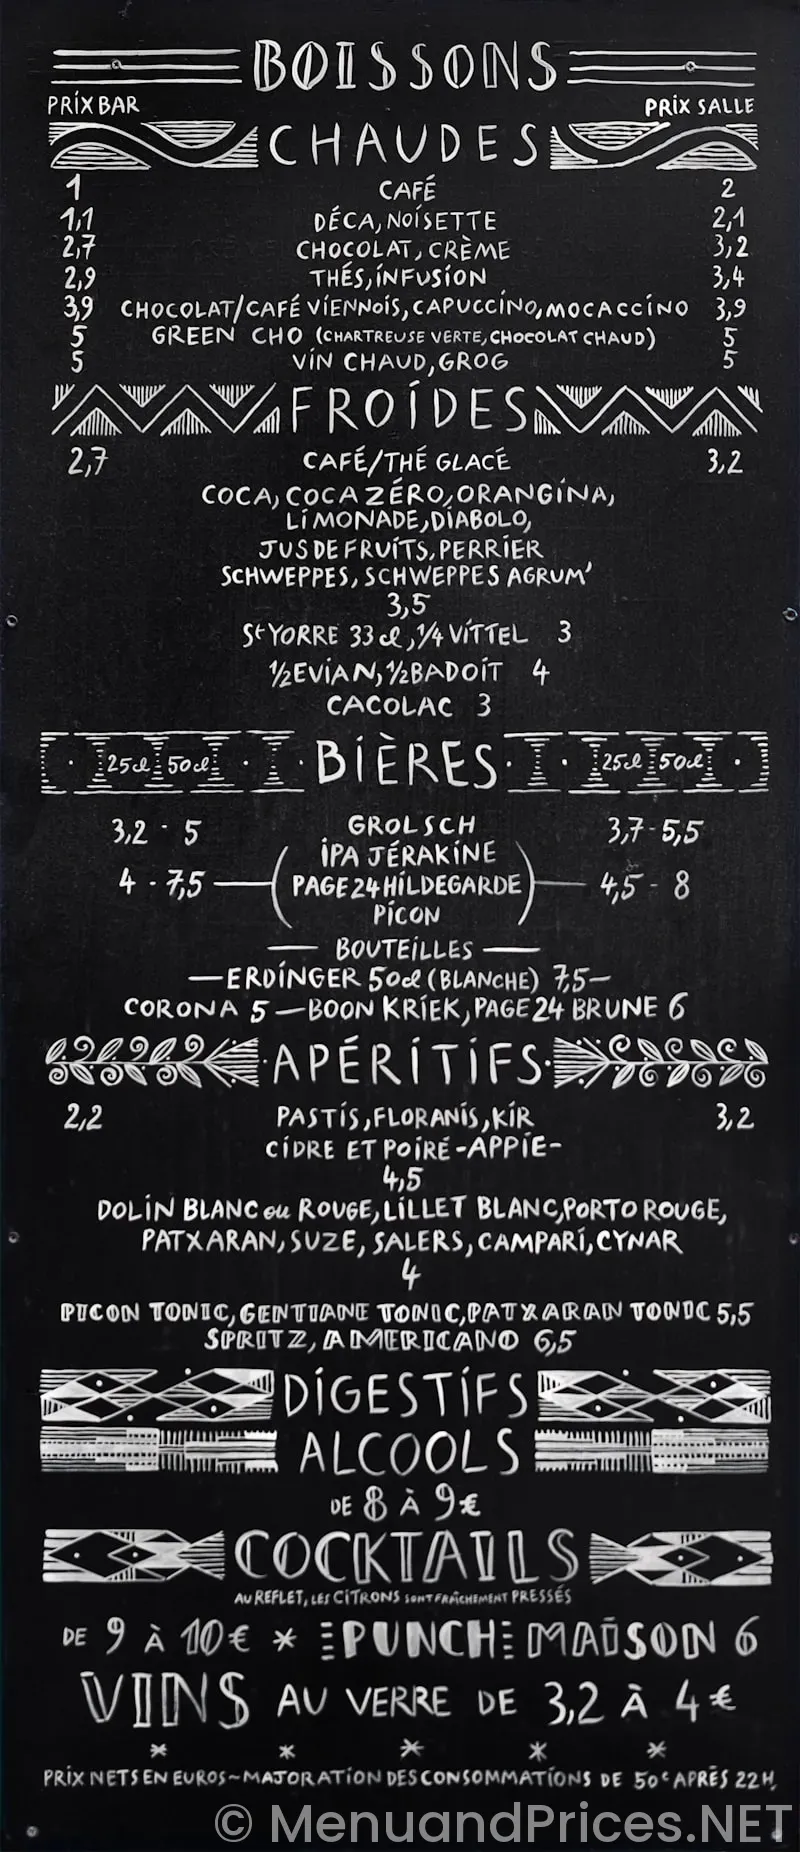 BOISSONS
PRIX BAR PRIX SALLE
CHAUDES
1 CAFÉ 2
1,1 DÉCA, NOISETTE 2,1
2,7 CHOCOLAT, CRÈME 3,2
2,9 THÉS, INFUSION 3,4
3,9 CHOCOLAT/CAFÉ VIENNOIS, CAPUCCINO, MOCACCINO 3,9
5 GREEN CHO (CHARTREUSE VERTE, CHOCOLAT CHAUD) 5
5 VIN CHAUD, GROG 5
FROIDES
2,7 CAFÉ/THÉ GLACÉ 3,2
COCA, COCA ZÉRO, ORANGINA,
LIMONADE, DIABOLO,
JUS DE FRUITS, PERRIER
SCHWEPPES, SCHWEPPES AGRUM'
3,5
St YORRE 33 cl, 1/4 VITTEL 3
1/2 EVIAN, 1/2 BADOIT 4
CACOLAC 3
25cl 50cl BIÈRES 25cl 50cl
3,2 - 5 GROLSCH 3,7 - 5,5
IPA JÉRAKINE
4 - 7,5 — ( PAGE 24 HILDEGARDE ) — 4,5 - 8
PICON
— BOUTEILLES —
— ERDINGER 50cl (BLANCHE) 7,5 —
CORONA 5 — BOON KRIEK, PAGE 24 BRUNE 6
APÉRITIFS
2,2 PASTIS, FLORANIS, KIR 3,2
CIDRE ET POIRÉ - APPIE -
4,5
DOLIN BLANC ou ROUGE, LILLET BLANC, PORTO ROUGE,
PATXARAN, SUZE, SALERS, CAMPARI, CYNAR
4
PICON TONIC, GENTIANE TONIC, PATXARAN TONIC 5,5
SPRITZ, AMERICANO 6,5
DIGESTIFS
ALCOOLS
DE 8 À 9€
COCKTAILS
AU REFLET, LES CITRONS SONT FRAÎCHEMENT PRESSÉS
DE 9 À 10€ * PUNCH MAISON 6
VINS AU VERRE DE 3,2 À 4€
* * * * *
PRIX NETS EN EUROS ~ MAJORATION DES CONSOMMATIONS DE 50c APRÈS 22H.
© MenuandPrices.NET